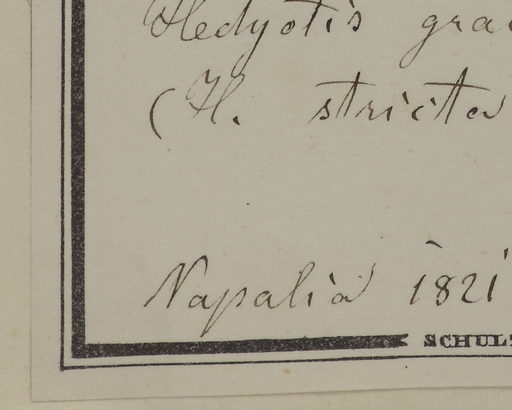 Hedyotis gra
(H. stricta
Napalia 1821
SCHUL